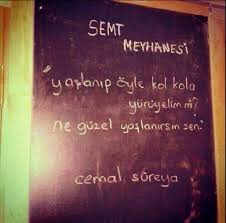 SEMT
MEYHANESİ
"yaşlanıp öyle, kol kola
yürüyelim mi?
ne güzel yaşlanırsın sen."
cemal süreya